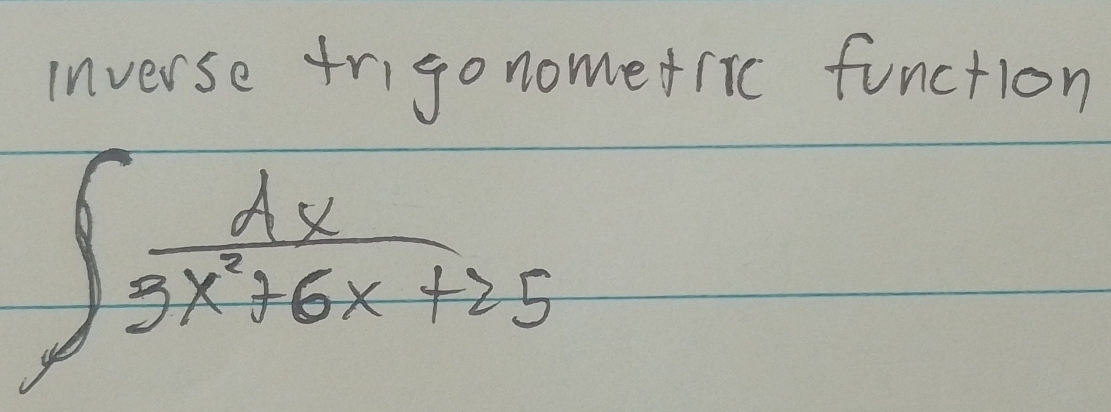 inverse trigonometric function
∫ dx / 3x²+6x+25